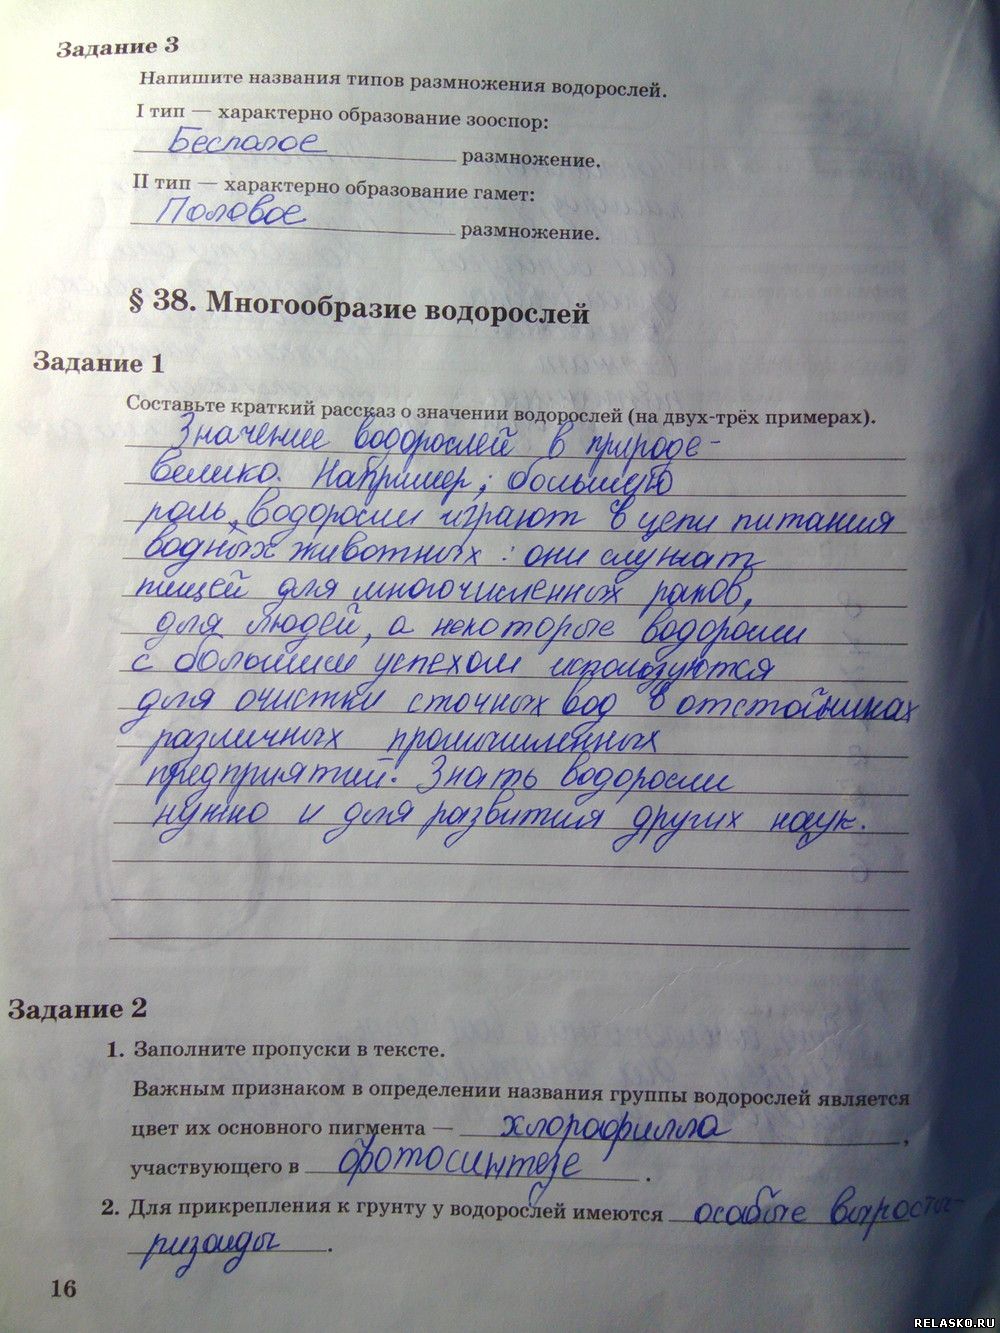 Задание 3
Напишите названия типов размножения водорослей.
I тип — характерно образование зооспор:
Бесполое размножение.
II тип — характерно образование гамет:
Половое размножение.
§ 38. Многообразие водорослей
Задание 1
Составьте краткий рассказ о значении водорослей (на двух-трёх примерах).
Значение водорослей в природе-
велико. Например, большую
роль водоросли играют в цепи питания
водных животных: они служат
пищей для многочисленных раков,
для людей, а некоторые водоросли
с большим успехом используются
для очистки сточных вод в отстойниках
различных промышленных
предприятий. Знать водоросли
нужно и для развития других наук.
Задание 2
1. Заполните пропуски в тексте.
Важным признаком в определении названия группы водорослей является
цвет их основного пигмента — хлорофилла,
участвующего в фотосинтезе.
2. Для прикрепления к грунту у водорослей имеются особые выросты-
ризоиды.
16
RELASKO.RU